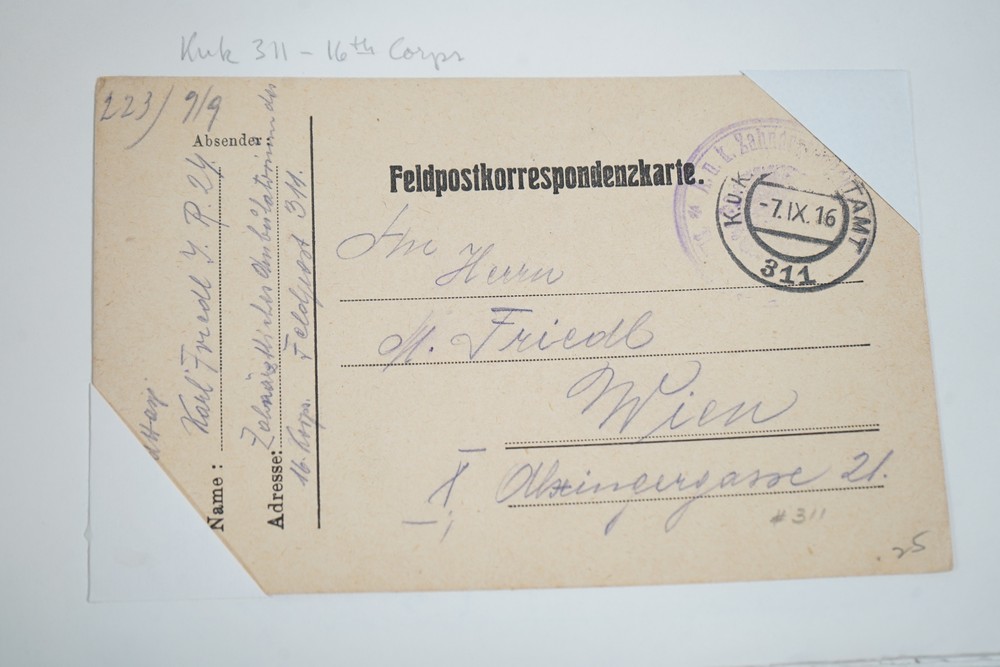 Kuk 311 – 16th Corps
223/ 9/9
Absender:
Name: Karl Friedl I. R. 24.
Adresse: Zahnärztliches Ambulatorium des
16. Corps. Feldpost 311.
Feldpostkorrespondenzkarte.
k. u. k. Zahnärz
K.u.K. TAMT
-7.IX.16
311
An
Herrn
M. Friedl
Wien
X Alxingergasse 21.
#311
25